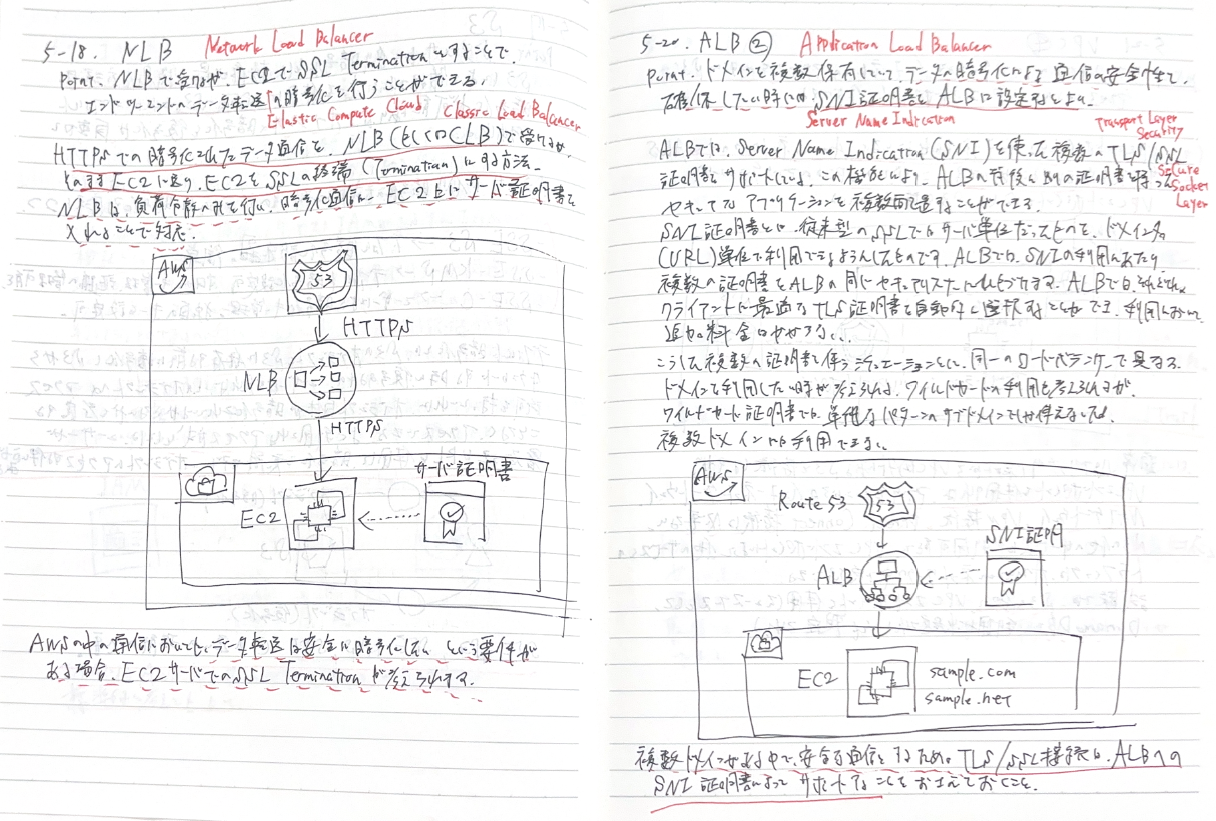 5-18. NLB Network Load Balancer
Point. NLBで受けるが、EC2でSSL Terminationすることで、
エンドツーエンドへデータ転送の暗号化を行うことができる。
Elastic Compute Cloud Classic Load Balancer
HTTPSでの暗号化されたデータ通信を、NLB(もしくはCLB)で受けるが、
そのままEC2に送り、EC2をSSLの終端(Termination)にする方法。
NLBは、負荷分散のみを行い、暗号化通信は、EC2上にサーバ証明書を
入れることで対応。
AWS
53
HTTPS
NLB
HTTPS
サーバ証明書
EC2
AWSの中の通信においても、データ転送は安全に暗号化したいという要件が
ある場合、EC2サーバでのSSL Terminationが考えられます。
5-20. ALB② Application Load Balancer
Point. ドメインを複数保有していて、データの暗号化による通信の安全性を
確保したい時には、SNI証明書をALBに設定するとよい。
Server Name Indication
Transport Layer
Security
ALBでは、Server Name Indication(SNI)を使った複数のTLS/SSL
証明書をサポートしている。この機能により、ALBの背後に別の証明書を持った
Secure
Socket
Layer
セキュアなアプリケーションを複数配置することができる。
SNI証明書とは、従来型のSSLではサーバ単位だったものを、ドメイン名
(URL)単位で利用できるようにしたものです。ALBでは、SNIの利用にあたり
複数の証明書をALBの同じセキュアリスナーに
クライアントに最適なTLS証明書を自動的に選択することができ、利用において
追加料金はかからない。
こうした複数の証明書を使うシチュエーションとして、同一のロードバランサーで異なる
ドメインを利用したい時が考えられる。ワイルドカードの利用も考えられるが、
ワイルドカード証明書では、単純なパターンのサブドメインでしか使えないため、
複数ドメインでは利用できない。
AWS
Route 53
53
SNI証明
ALB
EC2
sample.com
sample.net
複数ドメインがある中で、安全な通信をするための TLS/SSL接続は、ALBへの
SNI証明書によってサポートすることをおさえておくこと。